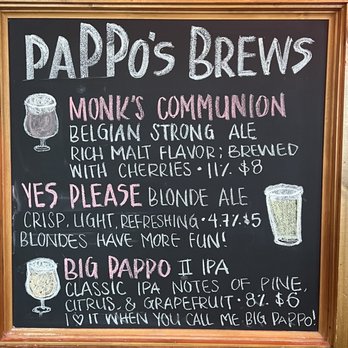 PAPPO'S BREWS
MONK'S COMMUNION
BELGIAN STRONG ALE
RICH MALT FLAVOR; BREWED
WITH CHERRIES • 11% $8
YES PLEASE BLONDE ALE
CRISP, LIGHT, REFRESHING • 4.7% $5
BLONDES HAVE MORE FUN!
BIG PAPPO II IPA
CLASSIC IPA NOTES OF PINE,
CITRUS, & GRAPEFRUIT • 8% $6
I ♡ IT WHEN YOU CALL ME BIG PAPPO!